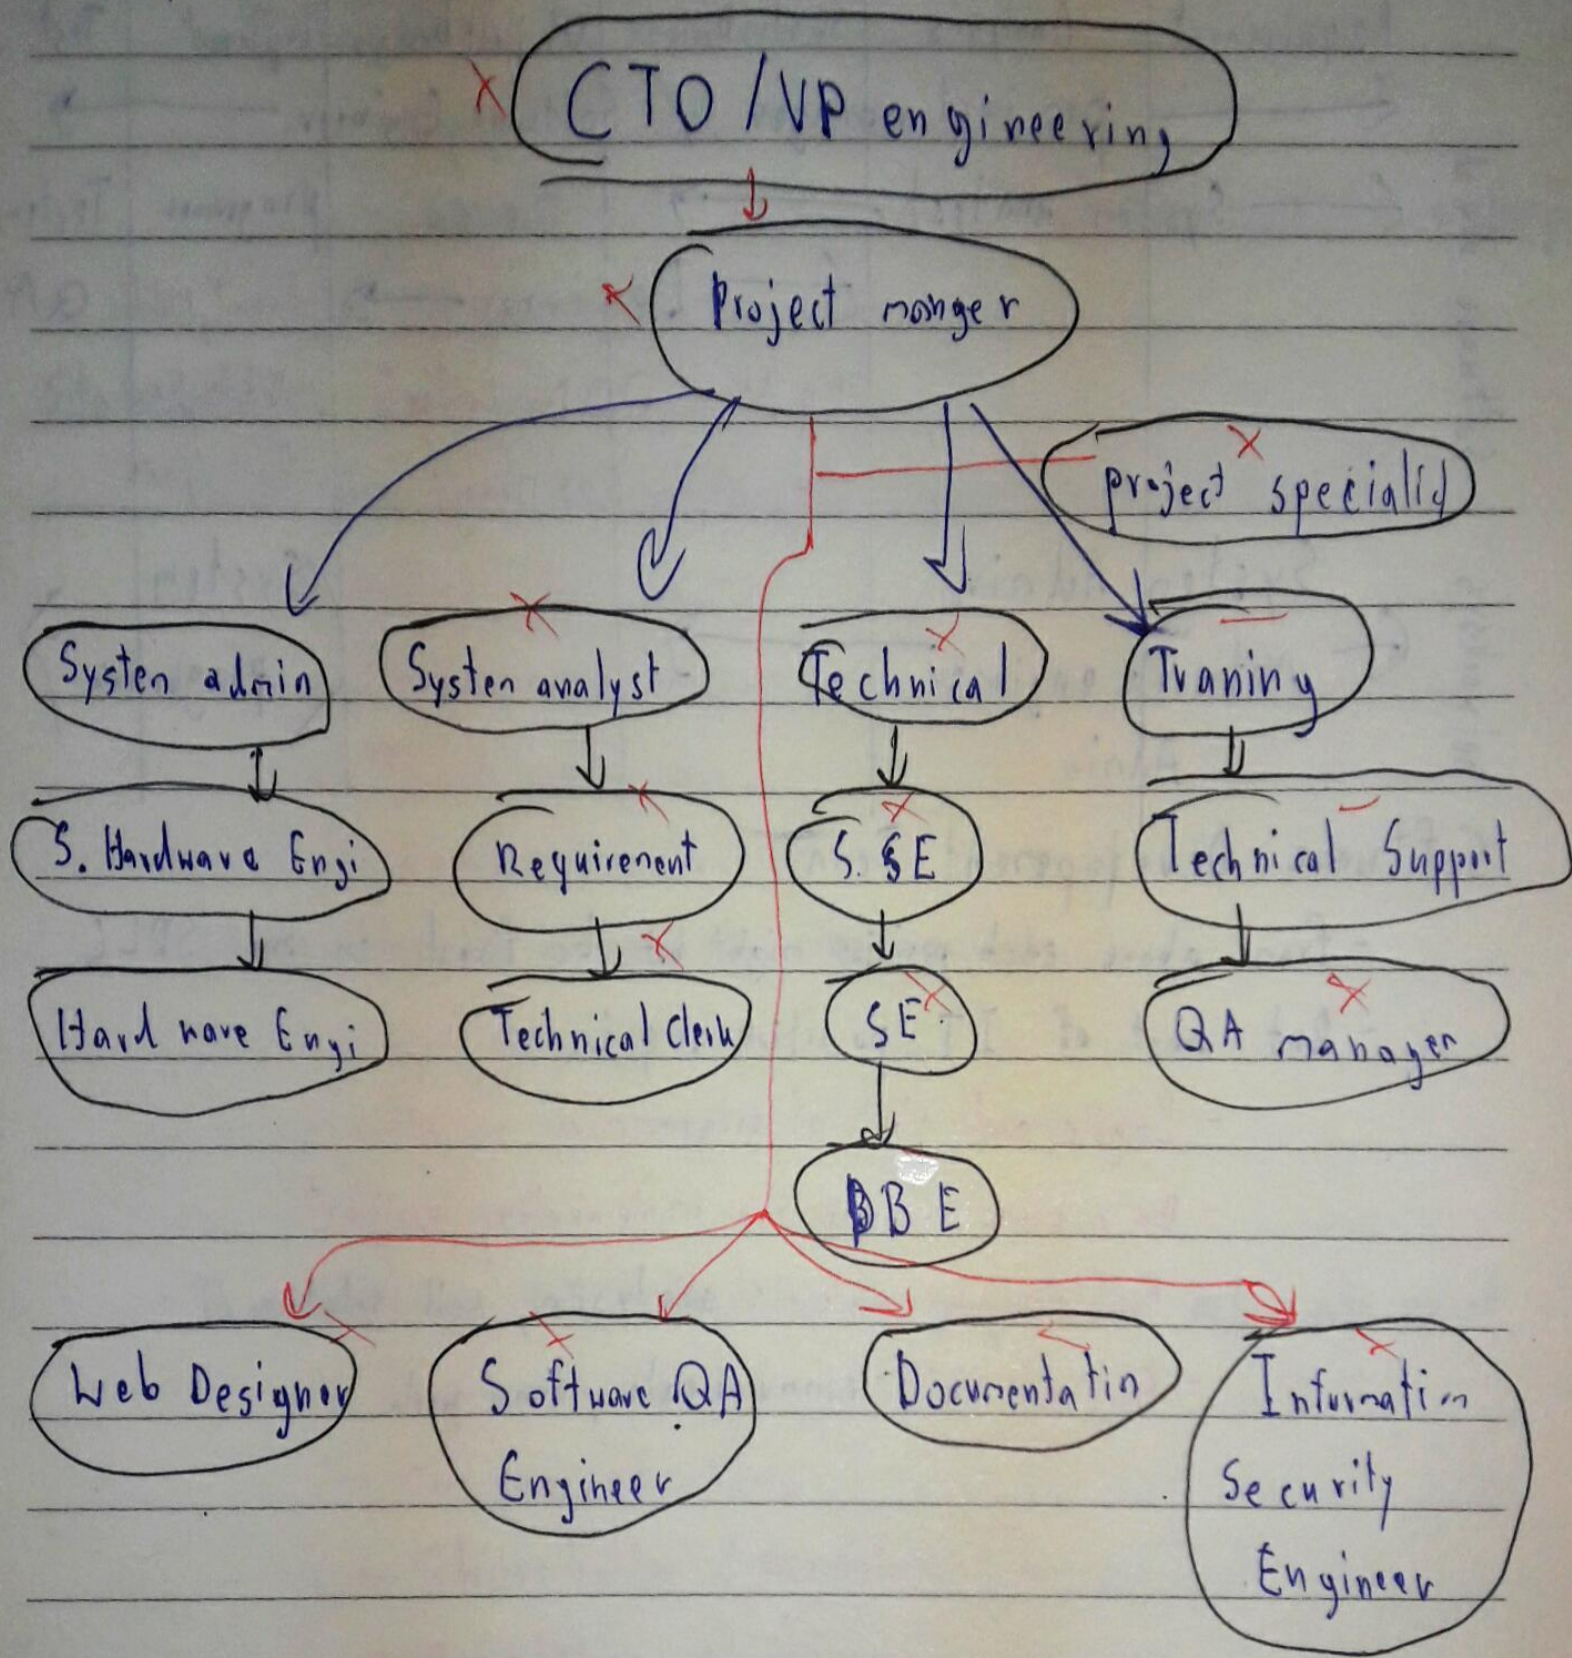 CTO / VP engineering
Project manger
project specialist
Systen admin
Systen analyst
Technical
Traning
S. Hardware Engi
Requirement
S. SE
Technical Support
Hard ware Engi
Technical Clerk
SE
QA manager
DB E
Web Designer
Software QA
Engineer
Documentatin
Information
Security
Engineer